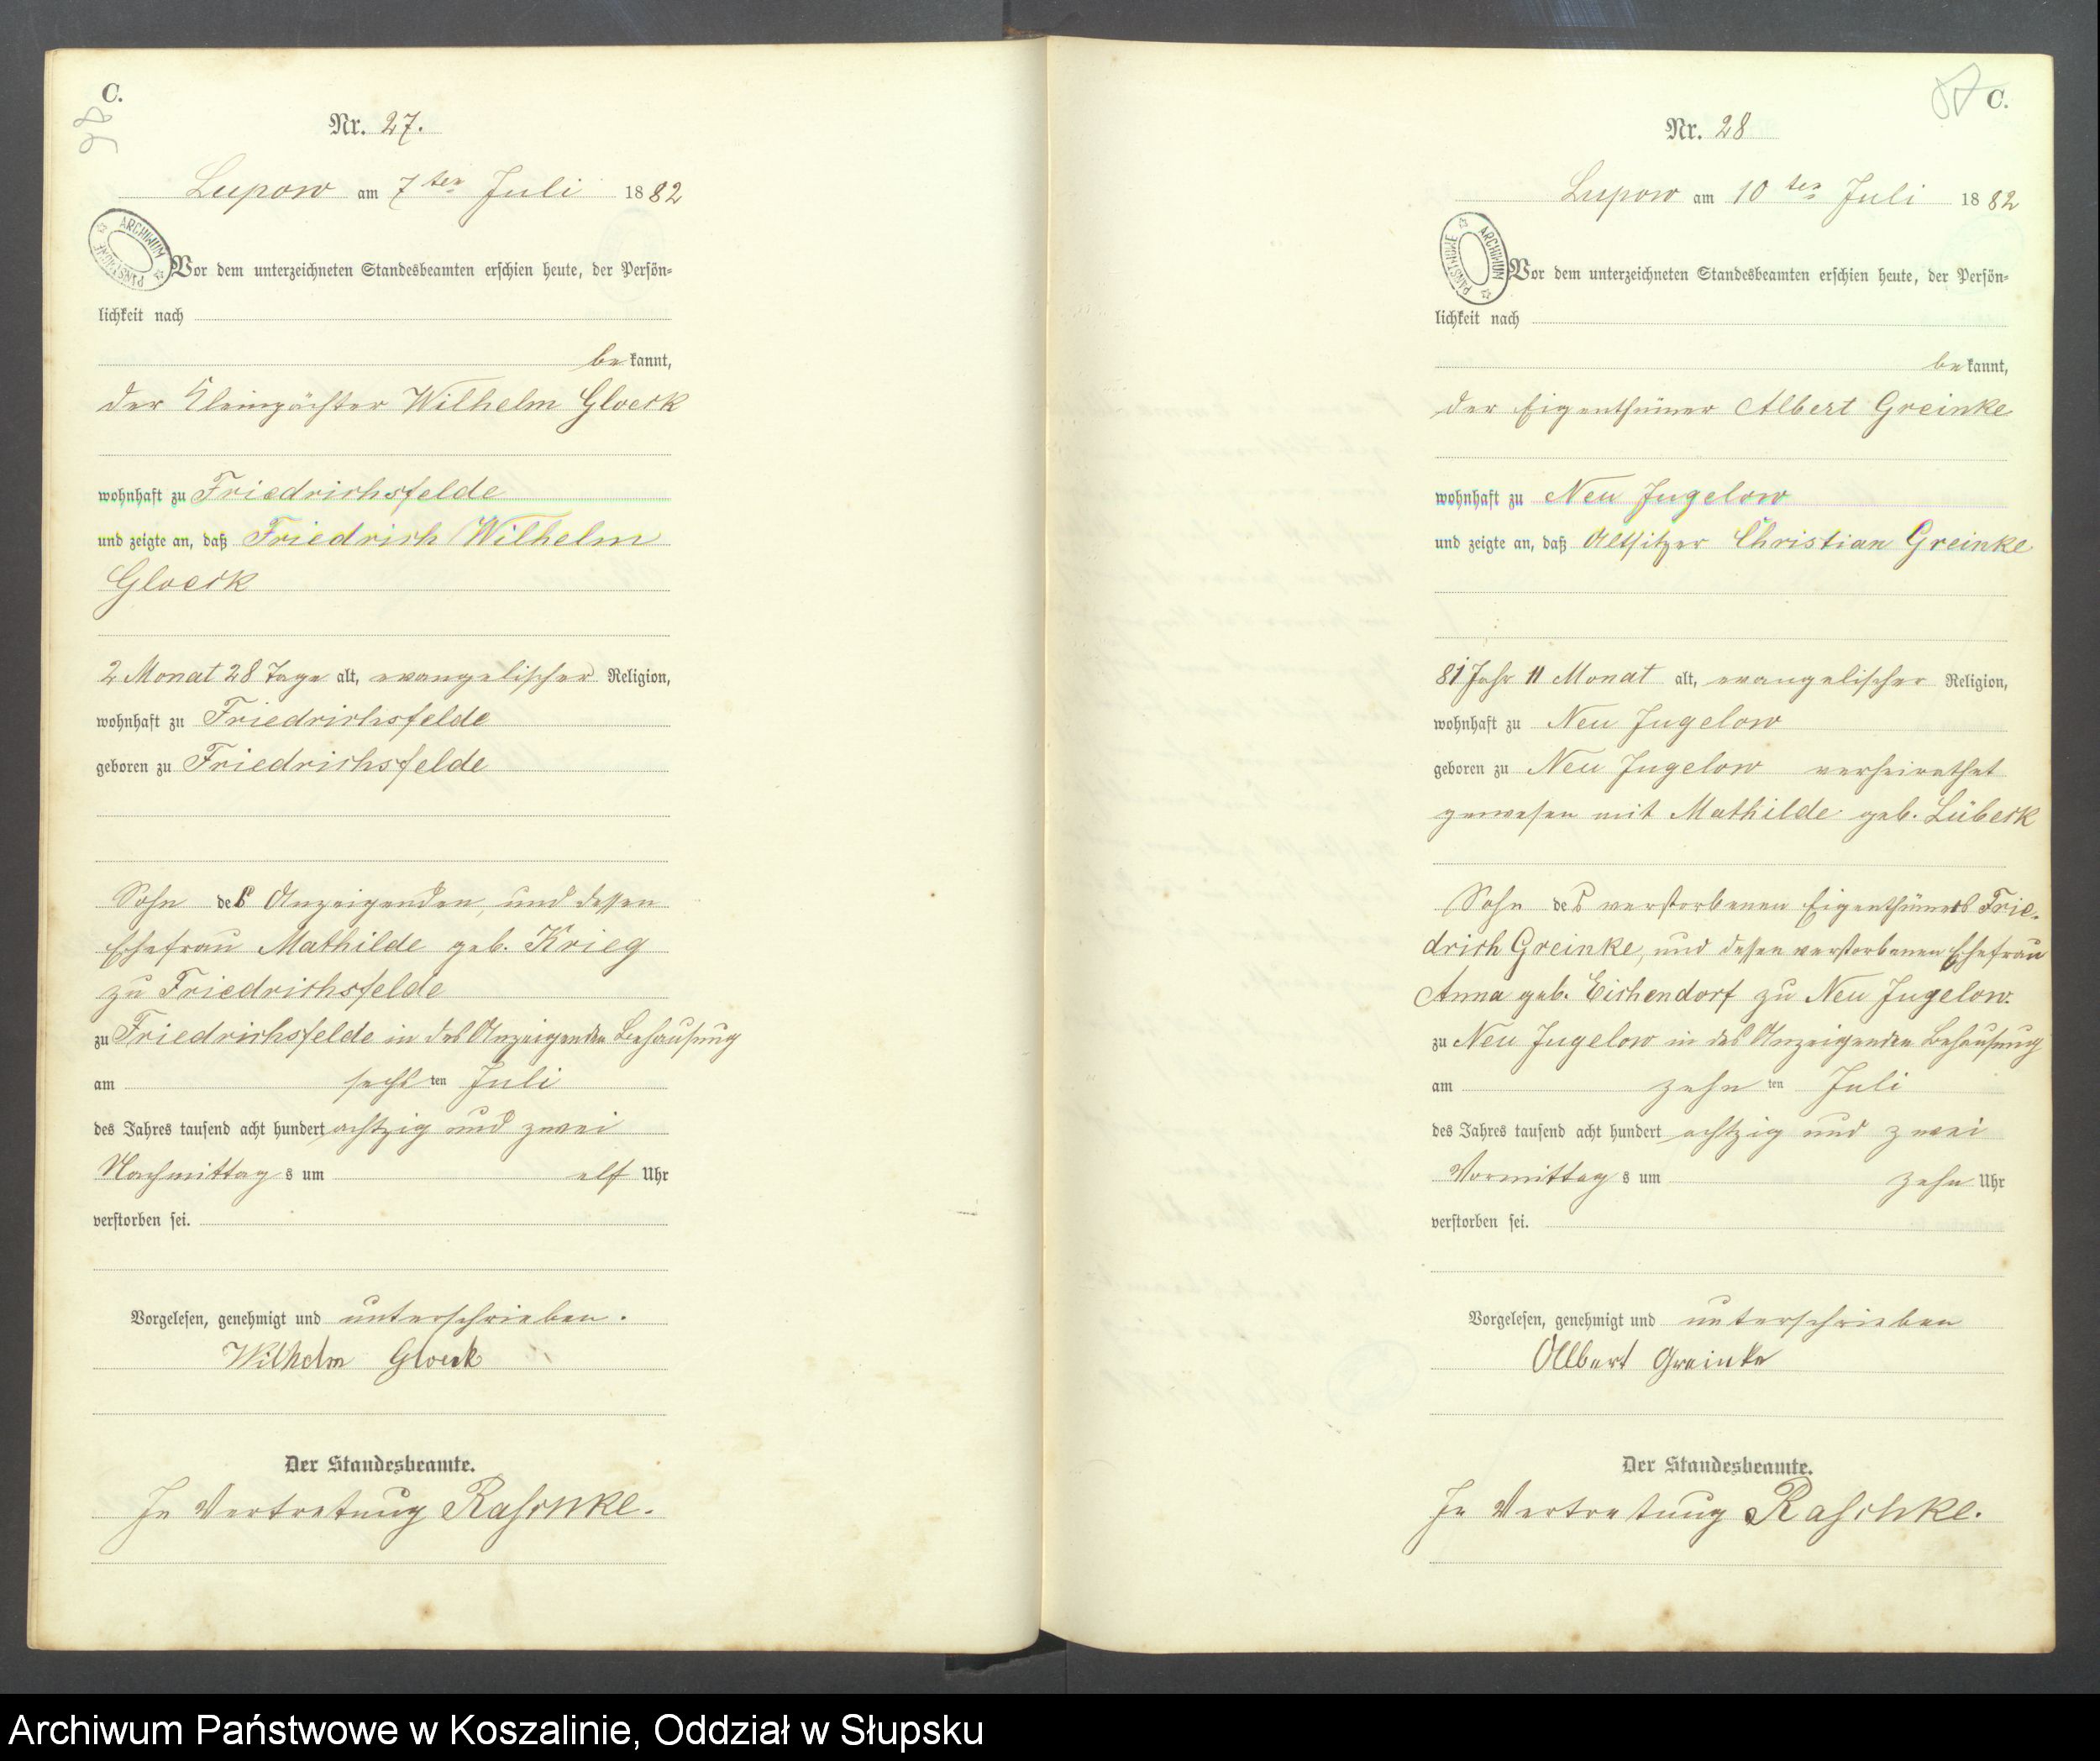 C.
Nr. 27.
Lupow am 7ten Juli 1882
ARCHIWUM PAŃSTWOWE
Vor dem unterzeichneten Standesbeamten erschien heute, der Persön-
lichkeit nach
bekannt,
der Kleinpächter Wilhelm Gloeck
wohnhaft zu Friedrichsfelde
und zeigte an, daß Friedrich Wilhelm
Gloeck
2 Monat 28 Tage alt, evangelischer Religion,
wohnhaft zu Friedrichsfelde
geboren zu Friedrichsfelde
Sohn des Anzeigenden, und dessen
Ehefrau Mathilde geb. Krieg
zu Friedrichsfelde
zu Friedrichsfelde in des Anzeigenden Behausung
am sechsten Juli
des Jahres tausend acht hundert achtzig und zwei
Nachmittags um elf Uhr
verstorben sei.
Vorgelesen, genehmigt und unterschrieben.
Wilhelm Gloeck
Der Standesbeamte.
In Vertretung Raschke.
C.
Nr. 28
Lupow am 10ten Juli 1882
ARCHIWUM PAŃSTWOWE
Vor dem unterzeichneten Standesbeamten erschien heute, der Persön-
lichkeit nach
bekannt,
der Eigenthümer Albert Greinke
wohnhaft zu Neu Jugelow
und zeigte an, daß Altsitzer Christian Greinke
81 Jahr 11 Monat alt, evangelischer Religion,
wohnhaft zu Neu Jugelow
geboren zu Neu Jugelow verheirathet
gewesen mit Mathilde geb. Lübeck
Sohn des verstorbenen Eigenthümers Frie-
drich Greinke, und dessen verstorbenen Ehefrau
Anna geb. Eichendorf zu Neu Jugelow.
zu Neu Jugelow in des Anzeigenden Behausung
am zehnten Juli
des Jahres tausend acht hundert achtzig und zwei
Vormittags um zehn Uhr
verstorben sei.
Vorgelesen, genehmigt und unterschrieben
Albert Greinke
Der Standesbeamte.
In Vertretung Raschke.
Archiwum Państwowe w Koszalinie, Oddział w Słupsku